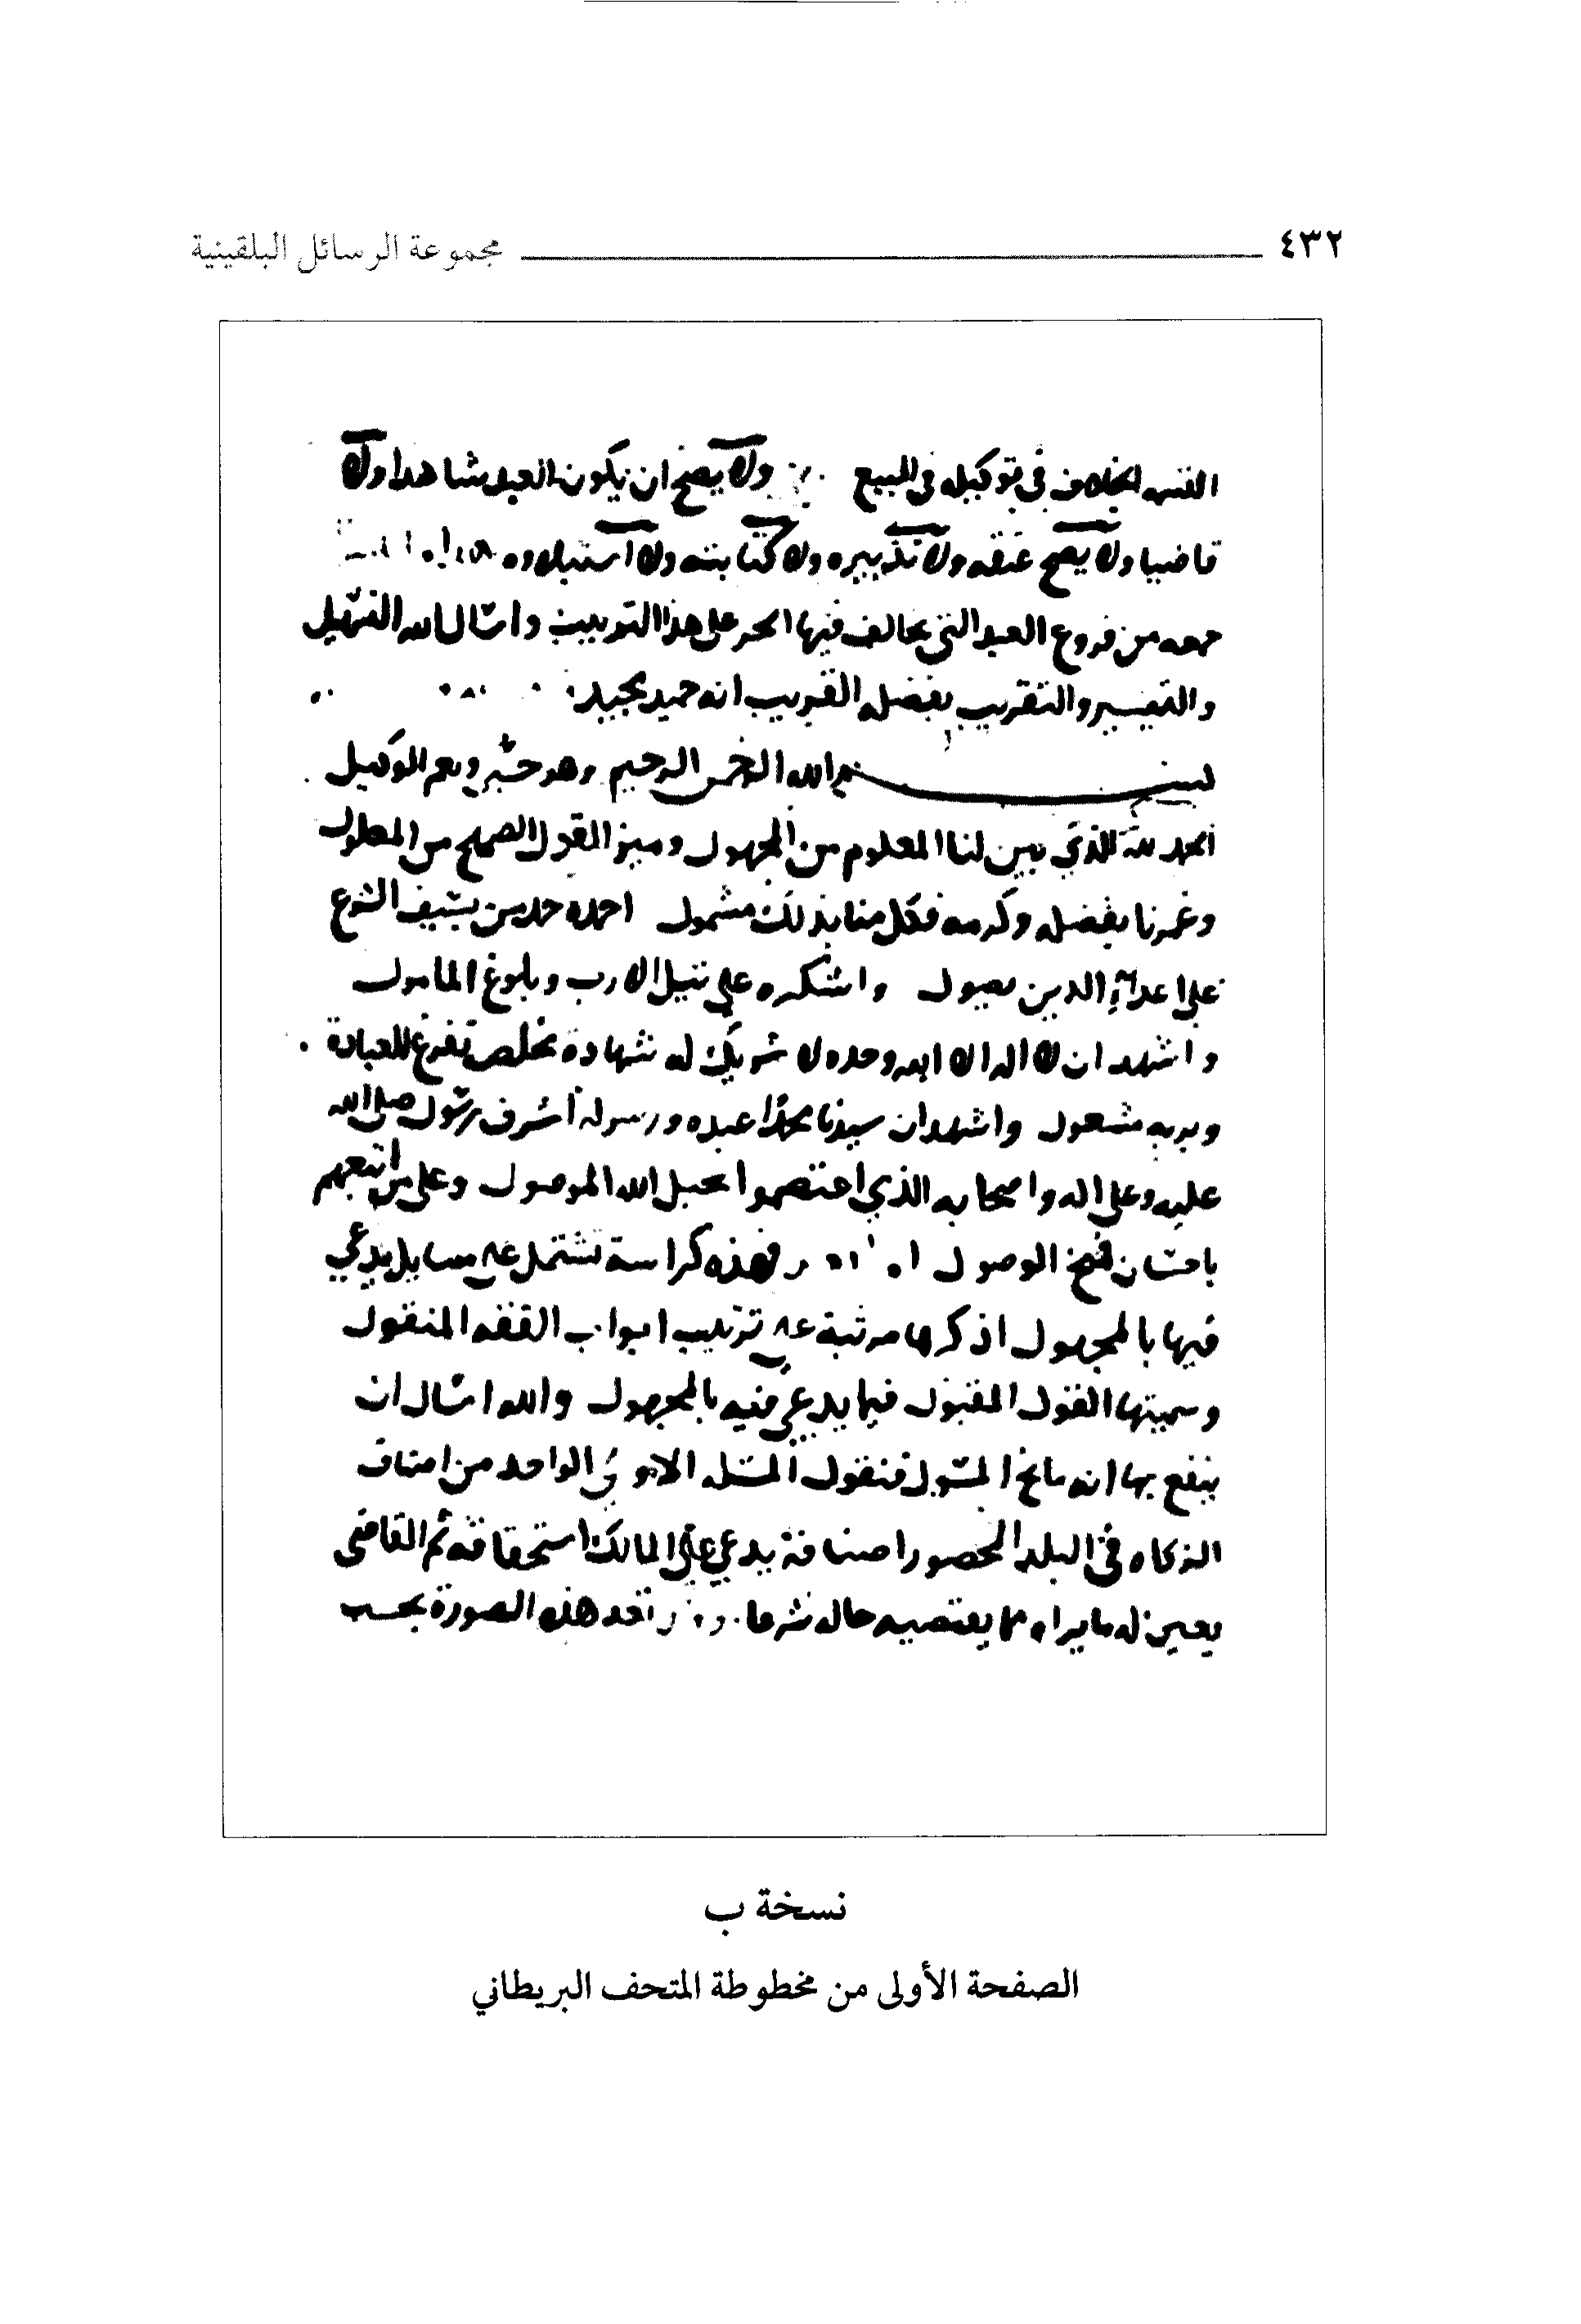 ٤٣٢ مجموعة الرسائل البلقينية
الخلاف في توكيله في البيع ولا يصح ان يكون العبد شاهدا ولا
قاضيا ولا يصح عتقه ولا تدبيره ولا كتابته ولا استيلاده
جمعه من فروع العبد التي يخالف فيها الحر على هذا التبويب واسال الله التسهيل
والتيسير والتقريب بفضله القريب انه حميد مجيد
بسم الله الرحمن الرحيم وهو حسبي ونعم الوكيل
الحمد لله الذي بين لنا المعلوم من المجهول وميز القول الصحيح من المعلول
وغمرنا بفضله وكرمه فكل منا بذلك مشمول احمده حمد من بسيف الشرع
على اعداء الدين يصول واشكره على نيل الارب وبلوغ المامول
واشهد ان لا اله الا الله وحده لا شريك له شهادة مخلص تفرغ للعبادة
وبربه مشغول واشهد ان سيدنا محمدا عبده ورسوله اشرف رسول صلى الله
عليه وعلى اله واصحابه الذي اعتصموا بحبل الله الموصول وعلى من اتبعهم
باحسان الوصول فهذه كراسة تشتمل على مسايل يدعي
فيها بالمجهول اذكرها مرتبة على ترتيب ابواب الفقه المنقول
وسميتها القول المقبول فيما يدعي فيه بالمجهول والله اسال ان
ينفع بها انه مانح السول فنقول المسئله الاولى الواحد من اصناف
الزكاه في البلد المحصور اصنافه يدعي على المالك استحقاقه ثم القاضي
يعين له ما يراه مما يقتضيه حاله شرعا هذه الصورة بحسب
نسخة ب
الصفحة الأولى من مخطوطة المتحف البريطاني